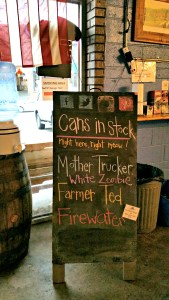 Cans in stock
right here, right meow!
Mother Trucker
White Zombie
Farmer Ted
Firewater